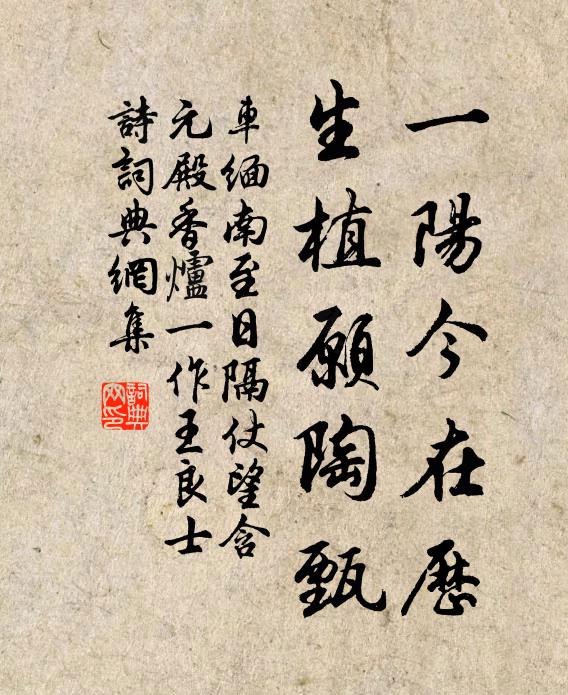 一陽今在歷
生植願陶甄
車緬南至日隔仗望含
元殿香爐一作王良士
詩詞典網集
詞典
网印